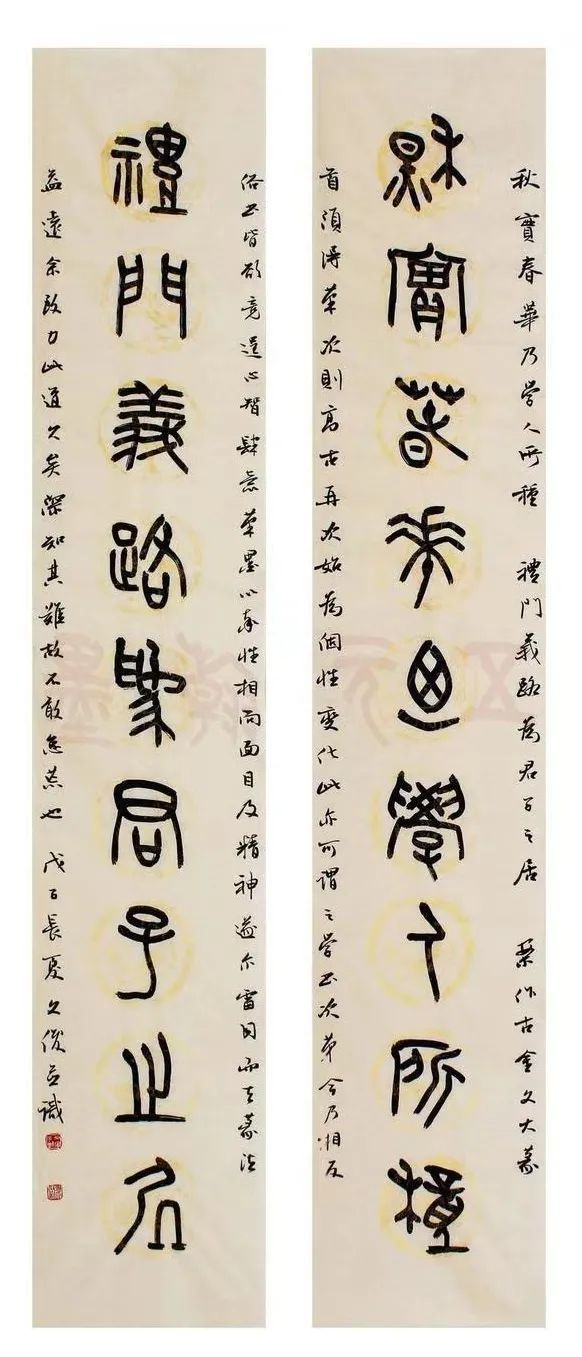 秋實春華乃學人所種 禮門義路為君子之居 作古金文大篆
秋實春華迺學人所種
首須得筆次則高古再次始為個性變化此亦可謂之學書次第今乃相反
俗書皆欲竟逞心智肆意筆墨以奉性相而面目及精神遂亦雷同而去篆法
禮門義路為君子之居
益遠余致力此道久矣深知其難故不敢怠荒也 戊子長夏 俊並識